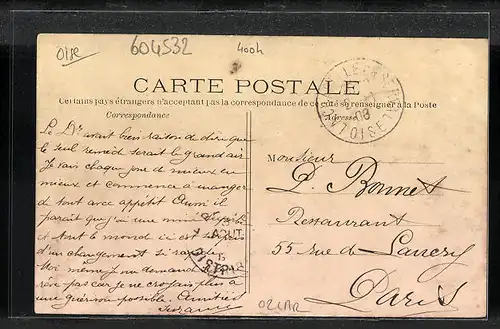 Oise
604532
400h
CARTE POSTALE
Certains pays étrangers n'acceptant pas la correspondance de ce côté se renseigner à la Poste
Correspondance
Adresse
OISE
08
Le Dr avait bien raison de dire que
le seul remèd serait le grand air
Je vais chaque jour de mieux en
mieux et commence à manger
de tout avec appétit
paraît que j'ai une mine
et tout le monde ici est
d'un changement si
Moi même je me demande
pas car je ne croyais plus à
une guérison possible. Amitiés
Suzanne
AOUT
DISTRIB
Monsieur
P. Bonnet
Restaurant
55 rue de Lancry
Paris